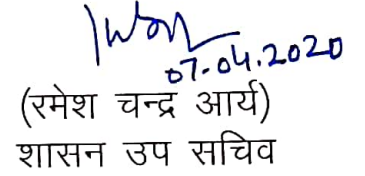 07-04.2020
(रमेश चन्द्र आर्य)
शासन उप सचिव